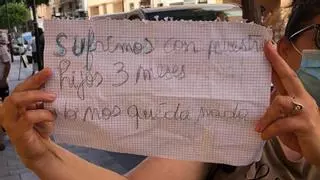 sufremos con nuestro
hijos 3 meses
no nos queda nada